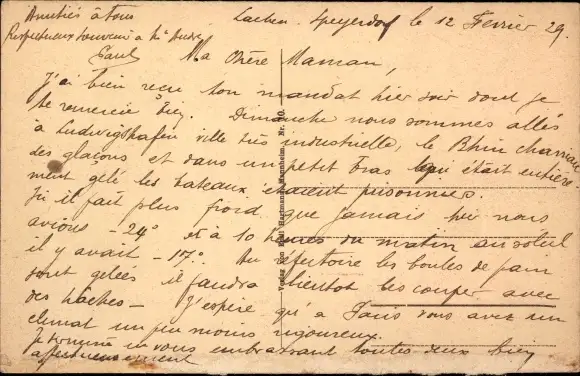 Amitiés à tous
Respectueux souvenir à Mr André
Paul
Lachen-Speyerdorf le 12 Février 29.
Ma Chère Maman,
J'ai bien reçu ton mandat hier soir dont je
te remercie bien. Dimanche nous sommes allés
à Ludwigshafen ville très industrielle, le Rhin charriait
des glaçons et dans un petit bras qui était entière-
ment gelé les bateaux étaient prisonniers.
Ici il fait plus froid que jamais hier nous
avions -24° et à 10 heures du matin au soleil
il y avait -17°. Au réfectoire les boules de pain
sont gelées il faudra bientôt les couper avec
des haches - J'espère qu'à Paris vous avez un
climat un peu moins rigoureux.
Je termine en vous embrassant toutes deux bien
affectueusement
Hartmann, Mannheim. Nr.